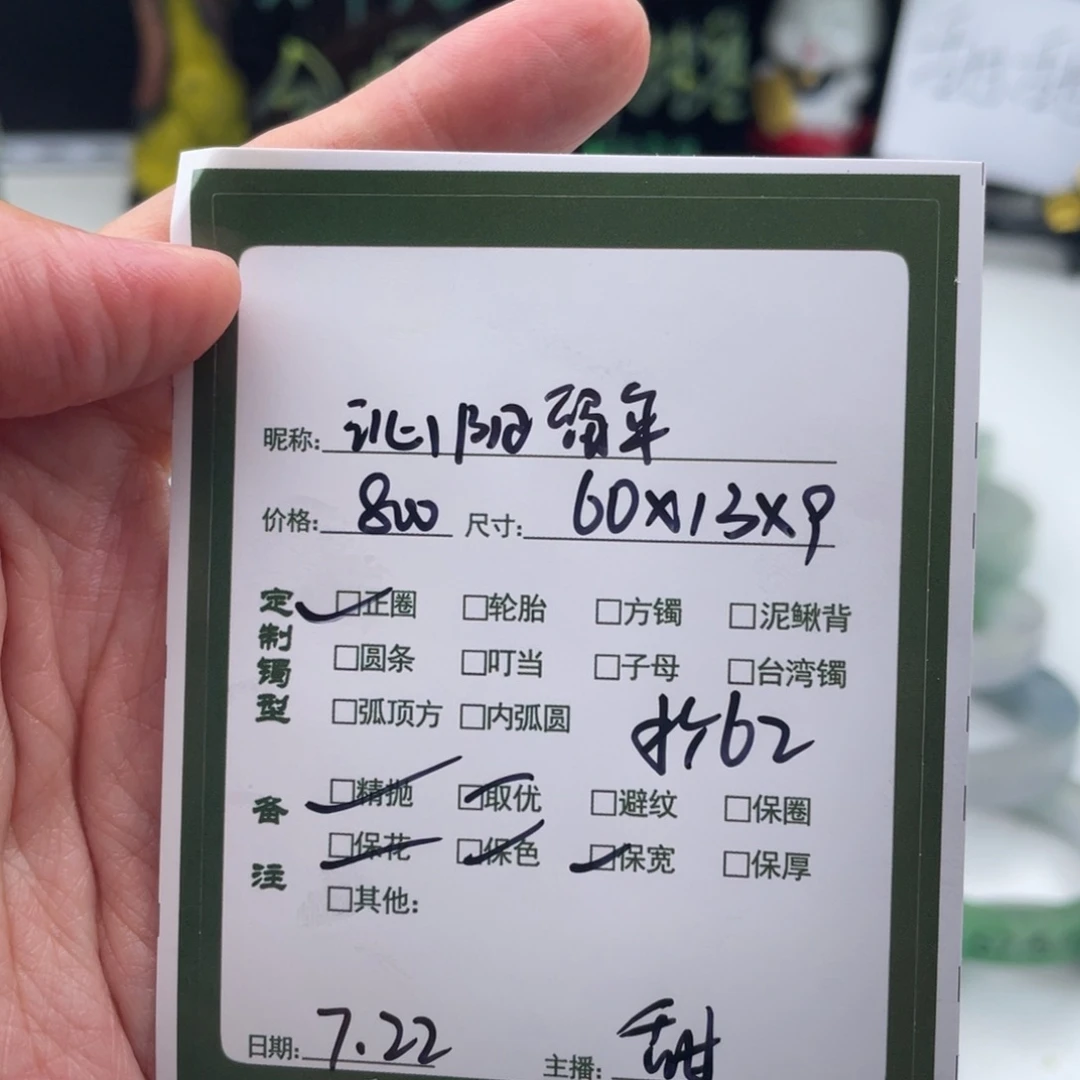 昵称: 沁阳瑙年
价格: 800 尺寸: 60×13×9
定制镯型
☑正圈 □轮胎 □方镯 □泥鳅背
□圆条 □叮当 □子母 □台湾镯
□弧顶方 □内弧圆 折62
备注
☑精抛 ☑取优 □避纹 □保圈
☑保花 ☑保色 ☑保宽 □保厚
□其他:
日期: 7.22 主播: 甜